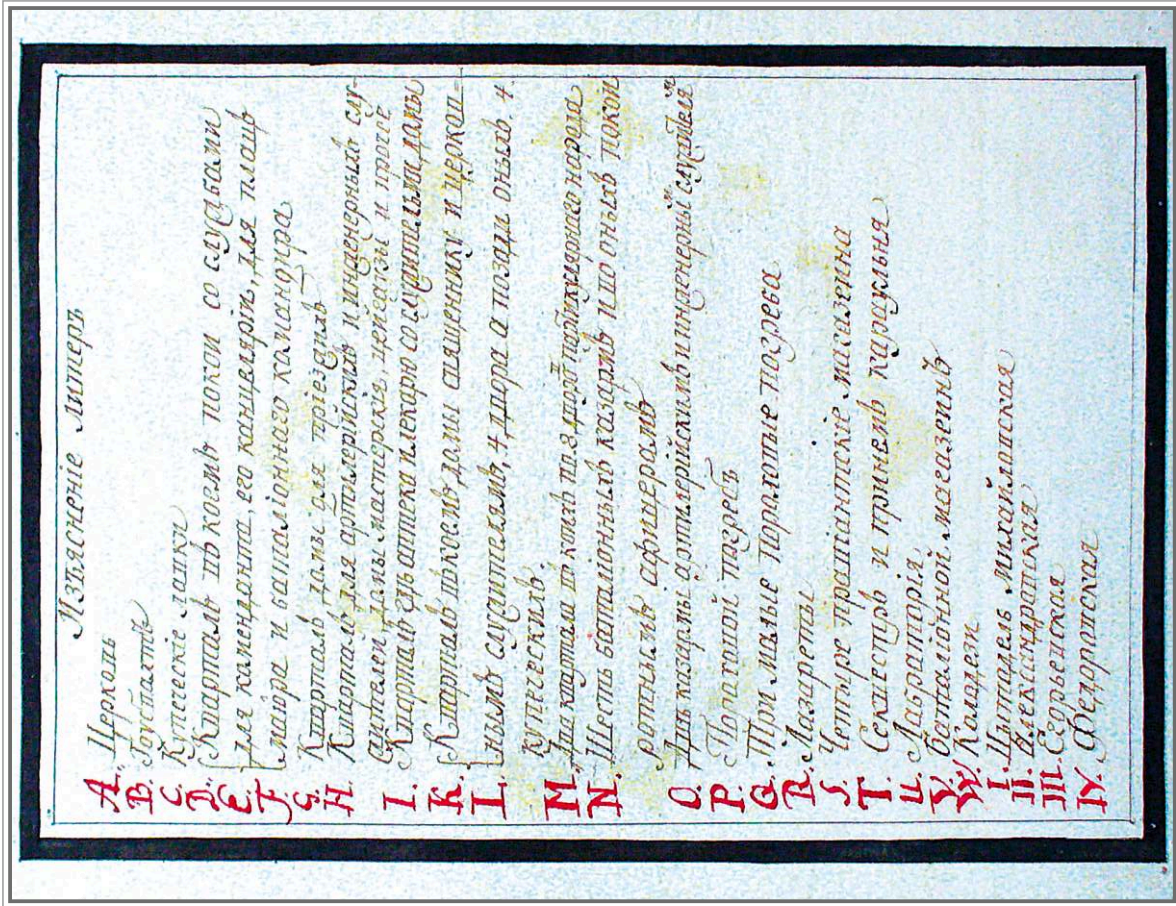 Изъяснение литеръ
A. Церковь
B. Гоубтвахтъ
C. Купеческіе лавки
D. Кварталъ въ коемъ покои со службами
E. для каменданта, его канцеляріи, для плацъ
F. маіора и баталіоннаго командира
G. Кварталъ домы для пріезднхъ
H. Кварталъ для артилерийскихъ и инженерныхъ слу-
жителей, домы мастерскія, цейхаузы и прочее
I. Кварталъ гдѣ аптека и лекарю со служительми домы
K. Кварталъ въ коемъ домы священнику и церков-
L. нымъ служителямъ, 4 двора а позади оныхъ 4
купеческихъ.
M. Два квартала въ коихъ по 3 двора партикулярнаго народа
N. Шесть баталионныхъ казармъ и во оныхъ покои
ротнымъ афицерамъ
O. Двѣ казармы артилерийскимъ и инженерны служителя
P. Пороховой погребъ
Q. Три малые Пороховые погреба
R. Лазареты
S. Четыре правіантскіе магазеина
T. Секвестръ и при немъ караульня
U. Лабраторія
V. баталіонной магазеинъ
W. Колодези
I. Цитадель михайловская
II. Александровская
III. Егорьевская
IV. Федоровская